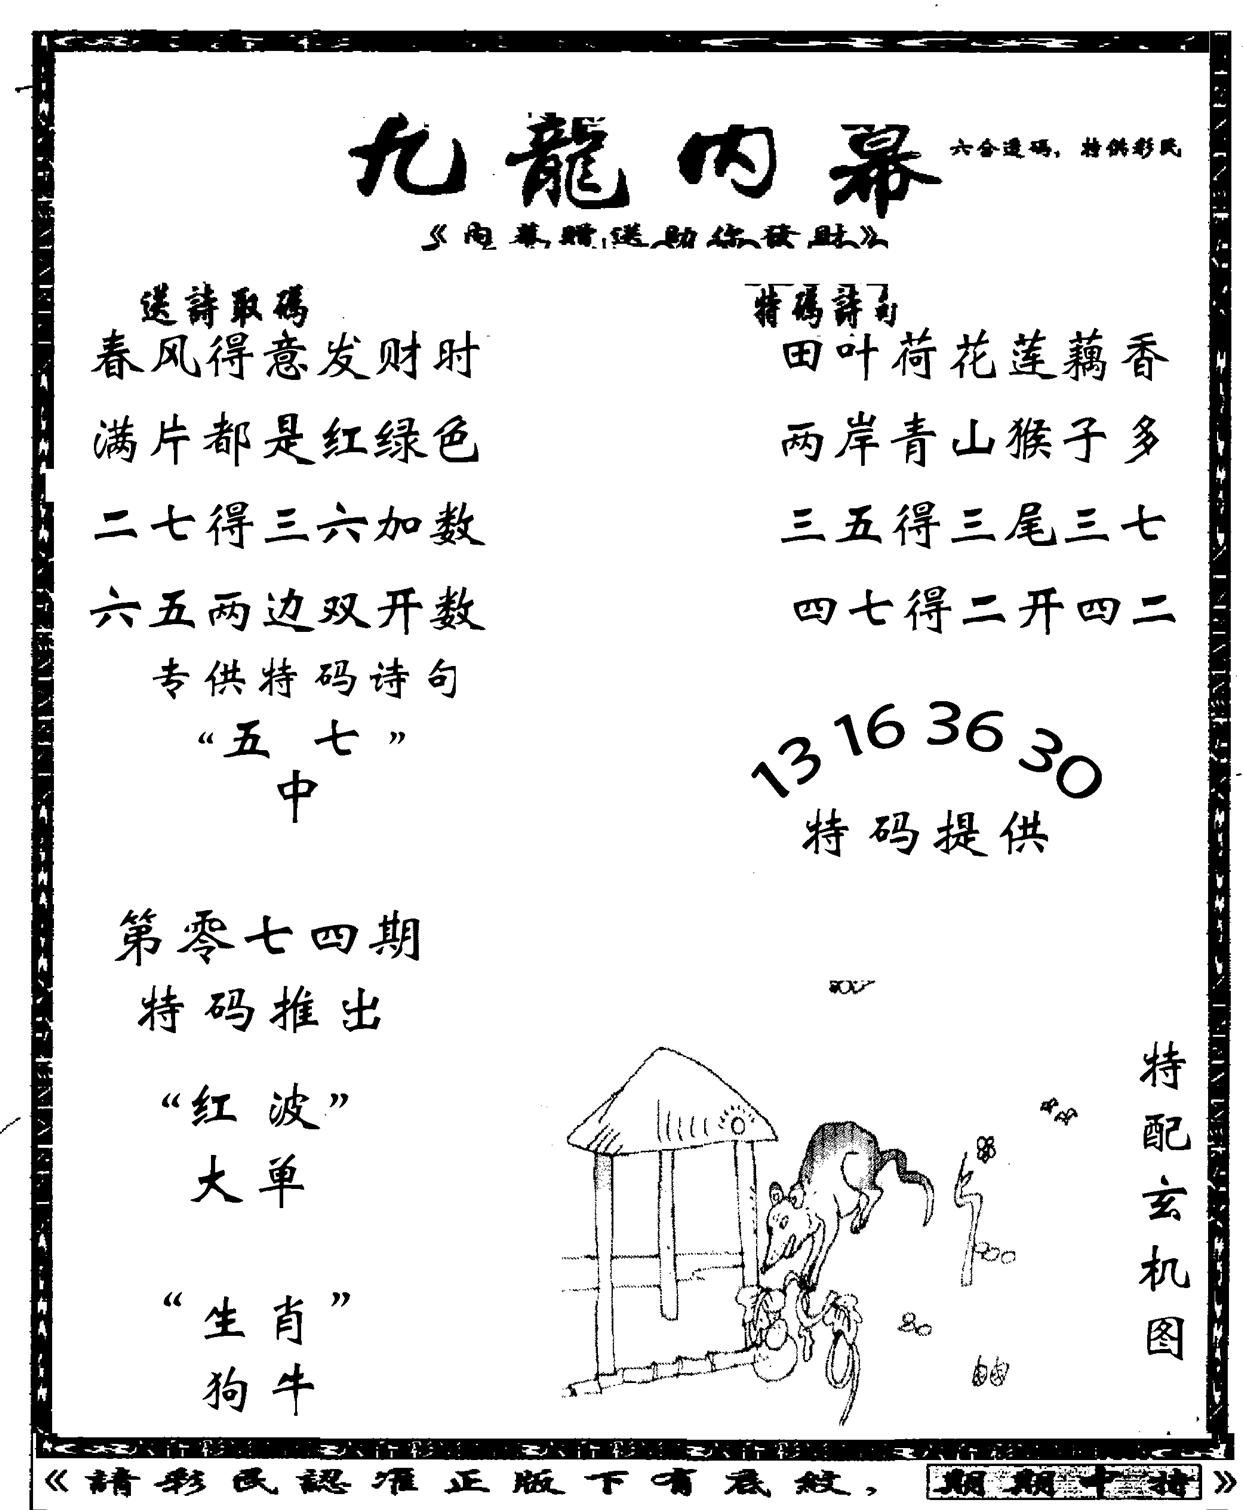 九龍内幕
六合透码，特供彩民
《内幕赠送助你發财》
送詩取碼
春风得意发财时
满片都是红绿色
二七得三六加数
六五两边双开数
专供特码诗句
“五七”
中
特碼詩句
田叶荷花莲藕香
两岸青山猴子多
三五得三尾三七
四七得二开四二
13 16 36 30
特码提供
第零七四期
特码推出
“红波”
大单
“生肖”
狗牛
特配玄机图
《請彩民認准正版下有底紋，期期中特》